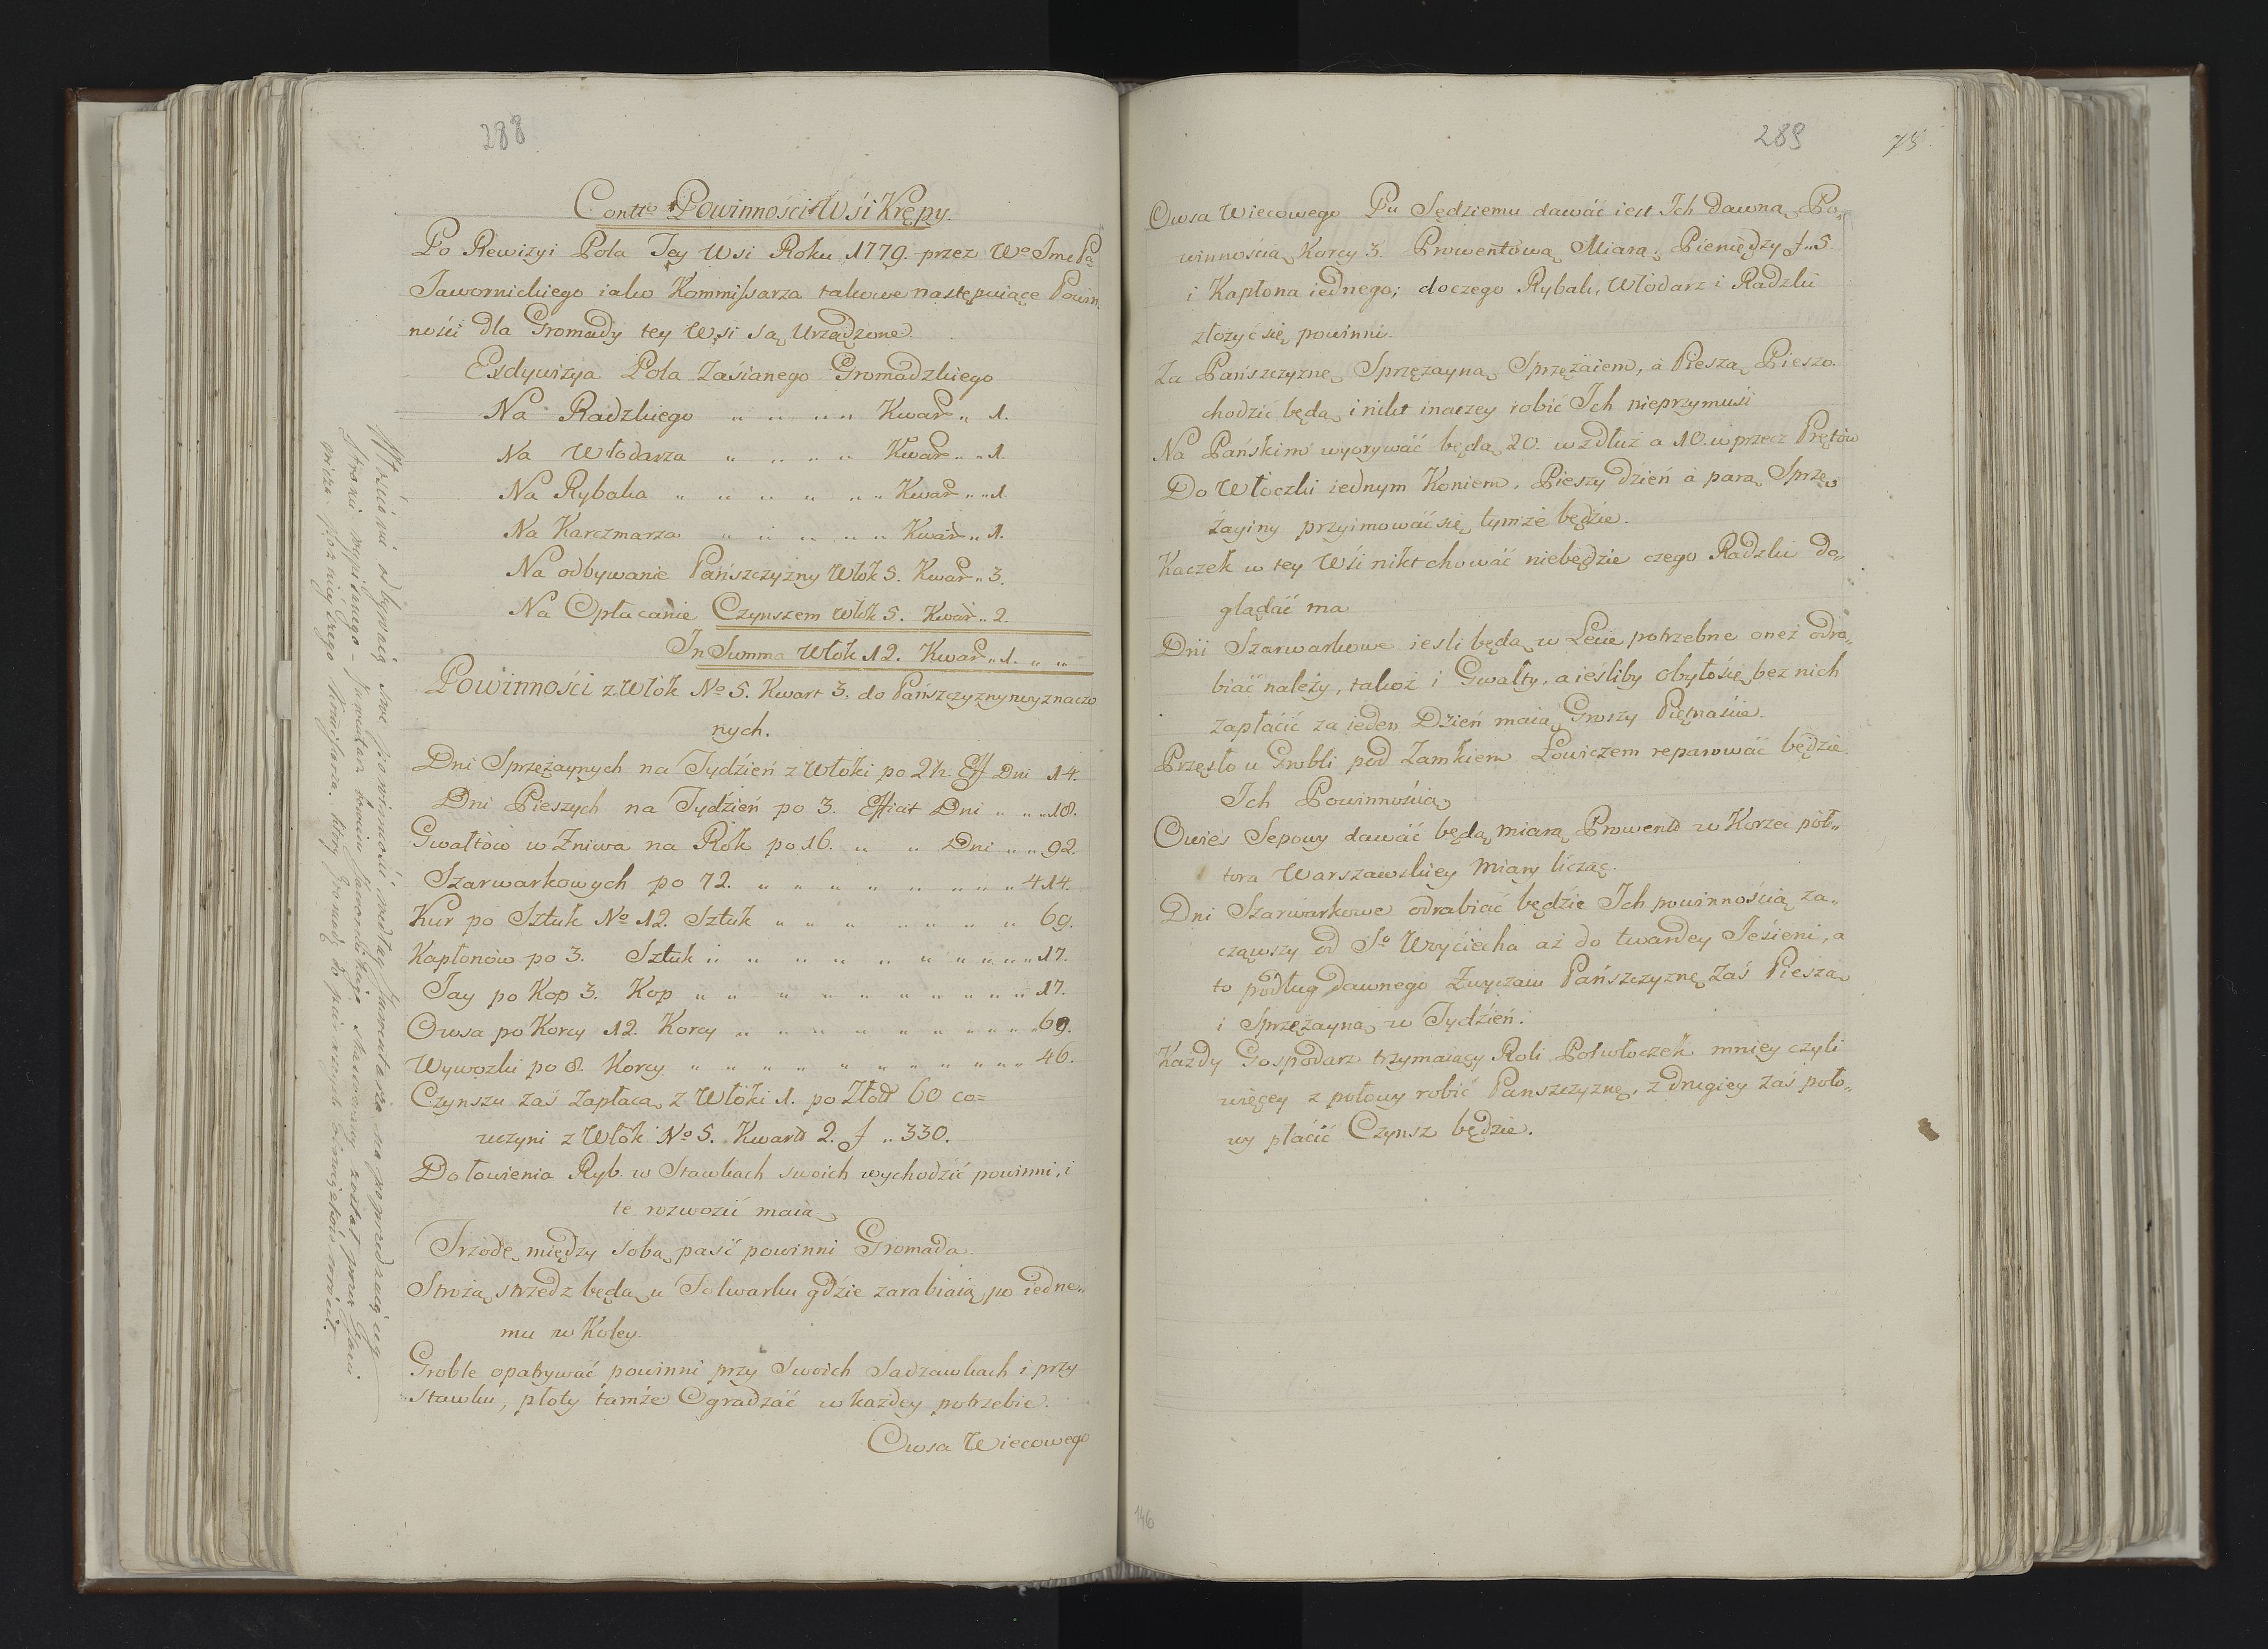 288
Contto Powinności Wśi Krępy.
Po Rewizyi Pola Tey Wsi Roku 1779. przez We Jme Pa
Jawornickiego iako Kommissarza takowe następuiące Powin,
ności dla Gromady tey Wsi są Urządzone.
Exdywizya Pola Zasianego Gromadzkiego
Na Radzkiego " " " " Kwar " 1.
Na Włodarza " " " " Kwar " " 1.
Na Rybaka " " " " " " Kwar " " 1.
Na Karczmarza " " " " " Kwar " 1.
Na odbywanie Pańszczyzny Włók 5. Kwar " 3.
Na Opłacanie Czynszem Włók 5. Kwar " 2.
In Summa Włok 12. Kwar " 1. " "
Powinności z Włók No 5. Kwart 3. do Pańszczyzny wyznaczo
nych.
Dni Sprzężaynych na Tydzień z Włoki po 2½. Eff Dni 14.
Dni Pieszych na Tydzień po 3. Efficit Dni " " " 18.
Gwałtów w Żniwa na Rok po 16. " " Dni " " 92.
Szarwarkowych po 72. " " " " " " " " " 414.
Kur po Sztuk No 12. Sztuk " " " " " " " 69.
Kapłonów po 3. Sztuk " " " " " " " " " " 17.
Jay po Kop 3. Kop " " " " " " " " " " 17.
Owsa po Korcy 12. Korcy " " " " " " " " " 69.
Wywozki po 8. Korcy " " " " " " " " " " 46.
Czynszu zaś Zapłacą z Włóki 1. po Złot 60 co=
uczyni z Włók No 5. Kwart 2. f " 330.
Do łowienia Ryb w Stawkach swoich wychodzić powinni, i
te rozwozić maią
Trzodę między sobą paść powinni Gromada.
Strożą strzedz będą u Folwarku gdzie zarabiaią po iedne"
mu w Koley.
Groble opatrywać powinni przy Swoich Sadzawkach i przy
Stawku, płoty tamże Ogradzać w każdey potrzebie.
Owsa Wiecowego
Włościanie odbywaią swe powinności wedłóg Jnwentarza na poprzedzaiącey
Stronie wypisanego - Jnwentarz
289
75
Owsa Wiecowego Pu Sędziemu dawać iest Ich Dawną Po"
winnością Korcy 3. Prowentową Miarą, Pieniędzy f " 5.
i Kapłona iednego; do czego Rybak, Włodarz i Radzki
złożyć się powinni.
Za Pańszczyznę Sprzęzayną Sprzężaiem, à Pieszą Pieszo.
chodzić będą i nikt inaczey robić Ich nieprzymusi
Na Pańskim wyorywać będą 20. wzdłuż a 10. w przecz Prętów
Do Włóczki iednym Koniem, Pieszy dzień à parą Sprzę
żayiny przyimować się tymże będzie.
Kaczek w tey Wśi nikt chować niebędzie czego Radzki do"
glądać ma
Dni Szarwarkowe iesli będą w Lecie potrzebne oneż odra"
biać należy, takoż i Gwałty, a ieśliby obyło się bez nich
zapłacić za ieden Dzień maią Groszy Piętnaście.
Przęsło u Grobli pod Zamkiem Łowiczem reparować będzie
Ich Powinnością
Owies Sepowy dawać będą miarą Prowent w Korzec pół"
tora Warszawskiey Miary licząc.
Dni Szarwarkowe odrabiać będzie Ich powinnością za"
cząwszy od So Woyciecha aż do twardey Jesieni, a
to podług dawnego Zwyczaiu Pańszczyznę Zaś Pieszą
i Sprzężayną w Tydzień.
Każdy Gospodarz trzymaiący Roli Półwłoczek mniey czyli
więcey z połowy robić Panszczyznę, z drugiey zaś poło"
wy płacić Czynsz będzie.
146